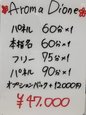 Aroma Dione
パネル 60分×1
本指名 60分×1
フリー 75分×1
パネル 90分×1
オプションバック+12000円
¥47.000